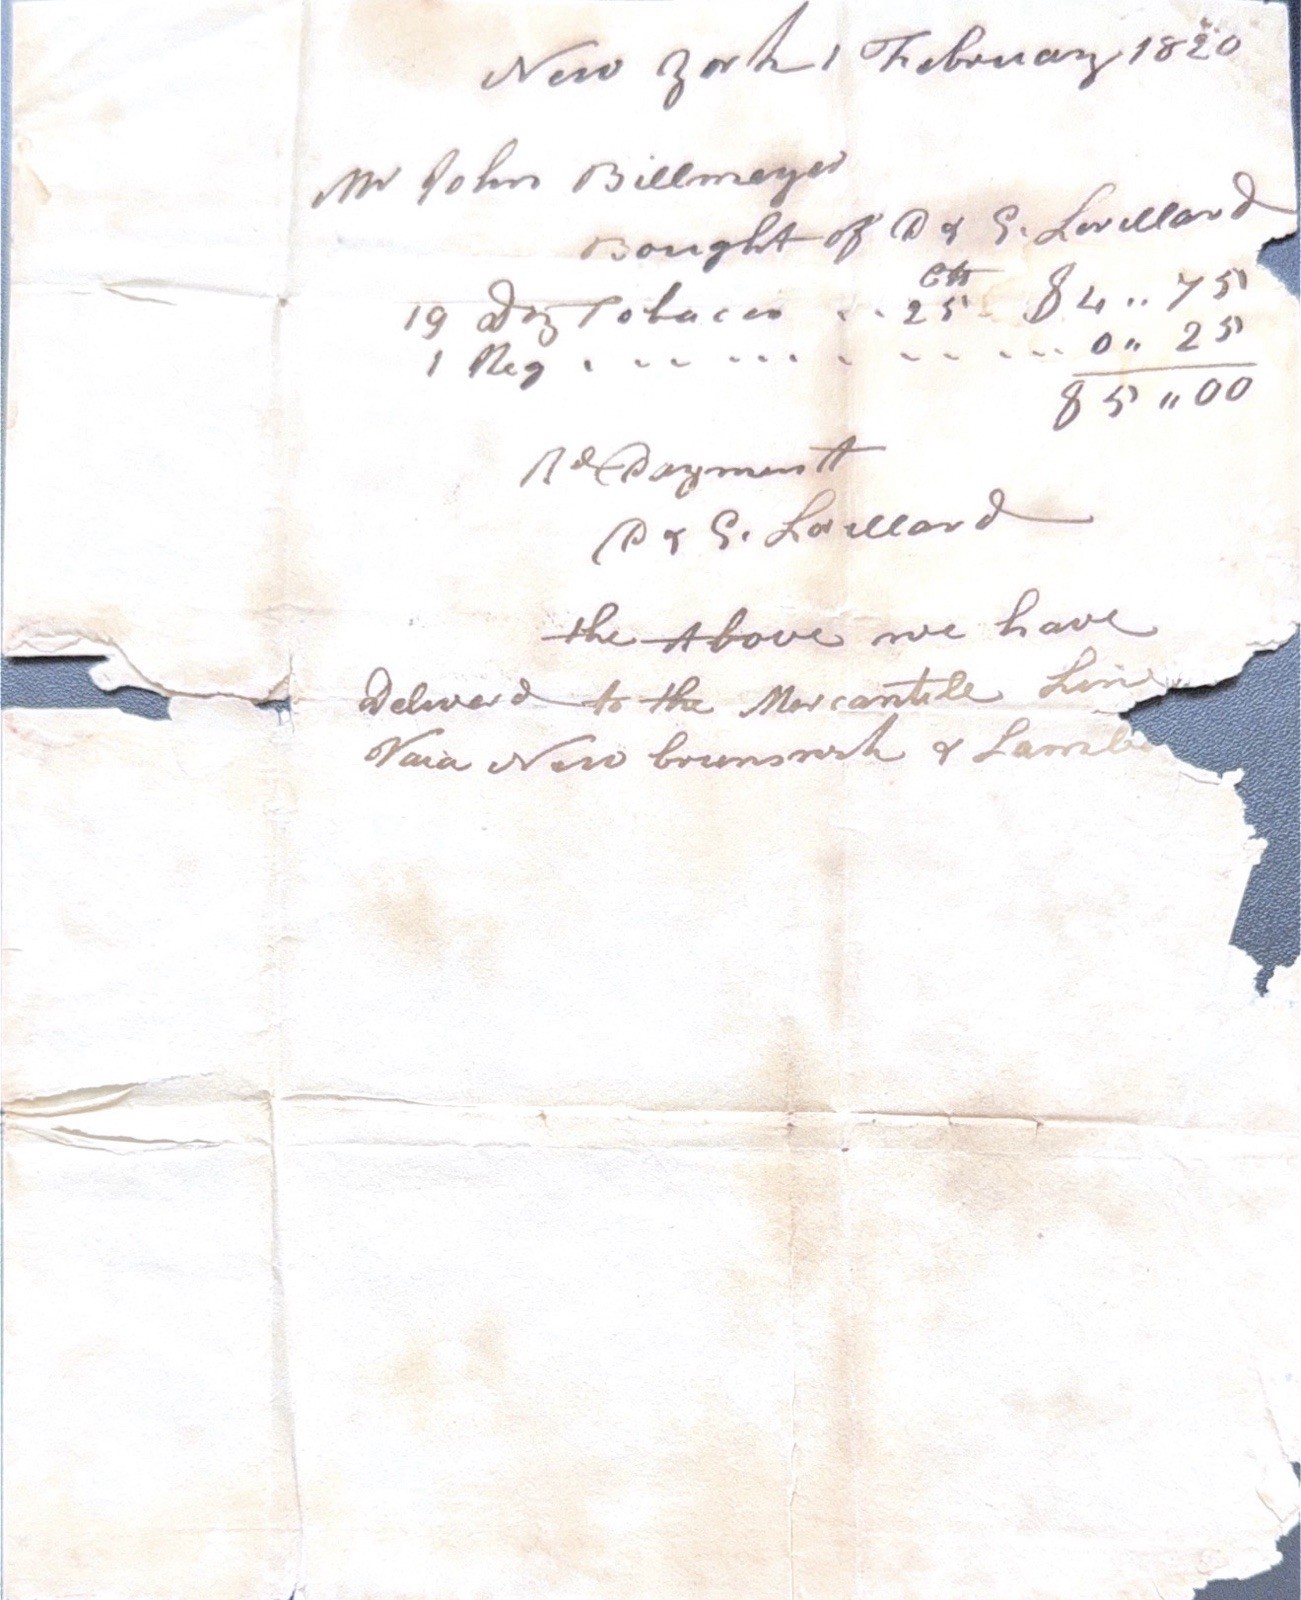 New York 1 February 1820
Mr John Billmeyer
Bought of P & G. Lorillard
cts
19 Doz Tobacco .. 25 - $ 4 .. 75
1 Keg . .. ... . .. .. ... 0 " 25
$ 5 " 00
Rd Payment
P & G. Lorillard
the Above we have
Deliverd to the Mercantile Line
Vaia New brunswick & Lamb